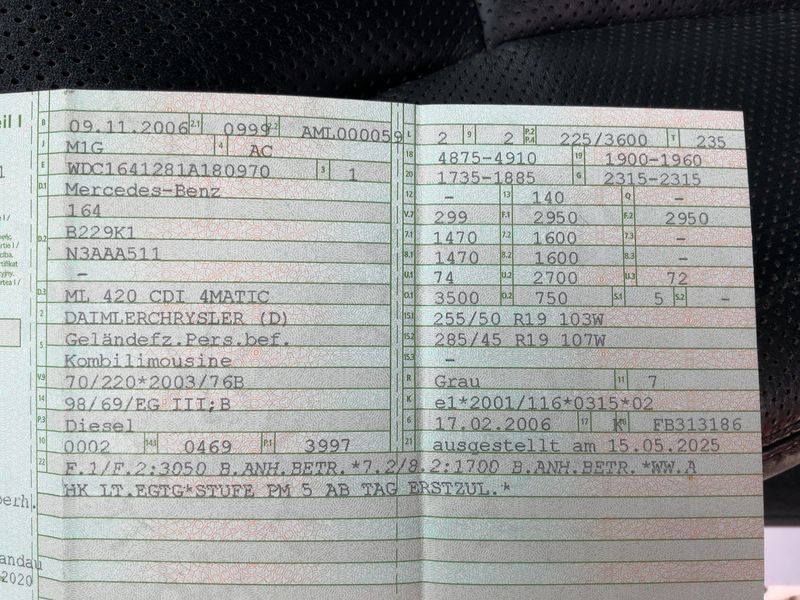 eil I
B 09.11.2006 2.1 0999 2.2 AML000059 L 2 9 2 P.2 P.4 225/3600 T 235
J M1G 4 AC 18 4875-4910 19 1900-1960
E WDC1641281A180970 3 1 20 1735-1885 G 2315-2315
D.1 Mercedes-Benz 12 - 13 140 Q -
164 V.7 299 F.1 2950 F.2 2950
D.2 B229K1 7.1 1470 7.2 1600 7.3 -
N3AAA511 8.1 1470 8.2 1600 8.3 -
- U.1 74 U.2 2700 U.3 72
D.3 ML 420 CDI 4MATIC O.1 3500 O.2 750 S.1 5 S.2 -
2 DAIMLERCHRYSLER (D) 15.1 255/50 R19 103W
5 Geländefz.Pers.bef. 15.2 285/45 R19 107W
Kombilimousine 15.3 -
V.9 70/220*2003/76B R Grau 11 7
14 98/69/EG III;B K e1*2001/116*0315*02
P.3 Diesel 6 17.02.2006 17 K 16 FB313186
10 0002 14.1 0469 P.1 3997 21 ausgestellt am 15.05.2025
22 F.1/F.2:3050 B.ANH.BETR.*7.2/8.2:1700 B.ANH.BETR.*WW.A
HK LT.EGTG*STUFE PM 5 AB TAG ERSTZUL.*
2020